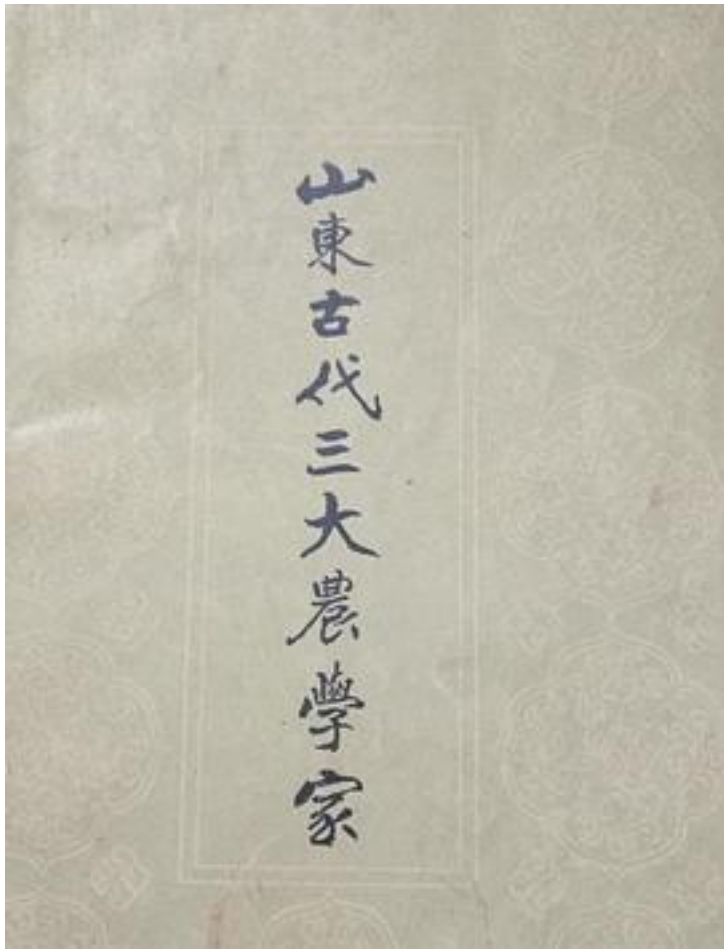 山東古代三大農學家